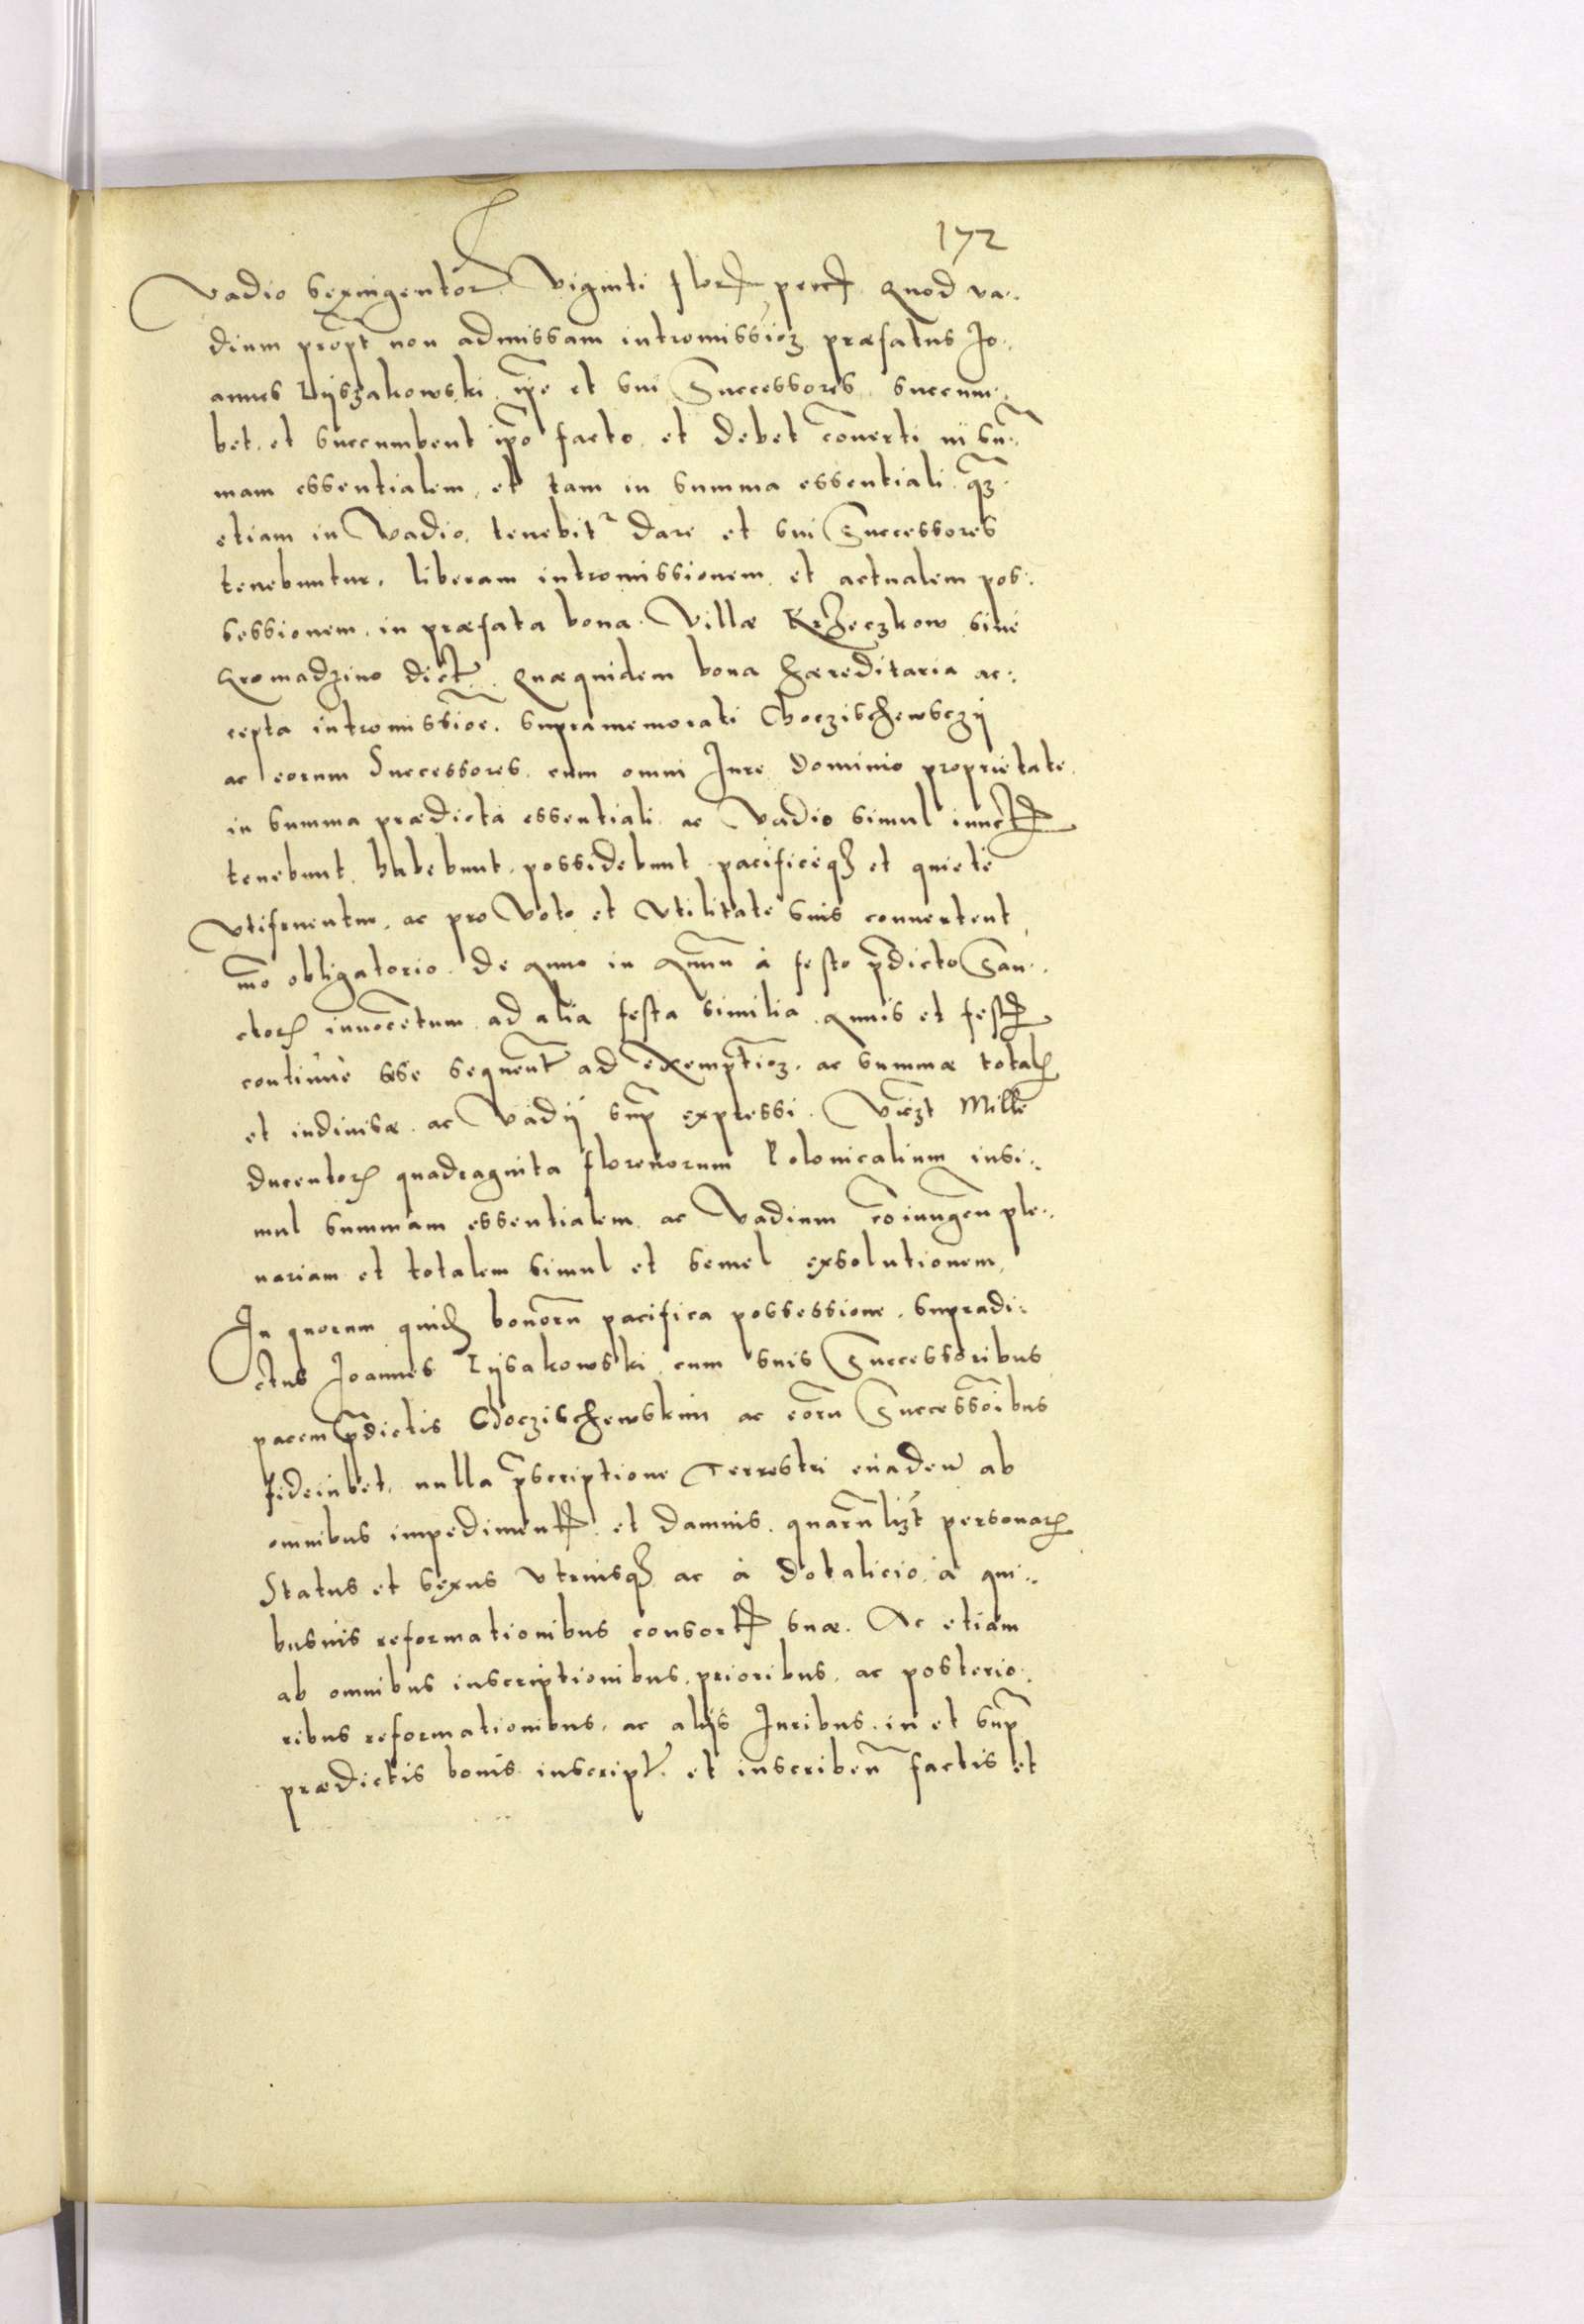 172
Vadio sexingentor Viginti flor pecū. Quod va-
dium propt non admissam intromissioē præfatus Jo-
annes Lyszakowski ipē et sui Successores succum-
bet, et succumbent ipō facto et debet cōuerti in sū-
mam essentialem, et tam in summa essentiali q̄ȝ
etiam in Vadio, tenebit² dare et sui Successores
tenebuntur, liberam intromissionem et actualem pos-
sessionem, in præfata bona Villæ Krzeczkow siue
Gromadzino dict. Quæquidem bona hæreditaria ac-
cepta intromissiōe, supramemorati Choczischewsczÿ
ac eorum Successores, cum omni Jure dominio proprietate
in summa prædicta essentiali ac Vadio simul iunct
tenebunt, habebunt, possidebunt pacificeq3 et quiete
Vtifruentur, ac pro Voto et Vtilitate suis conuertent
m̄o obligatorio. de Anno in Annū à festo p̄dicto San-
ctor3 innocētum ad alia festa similia Annis et fest
continuè sese sequent ad exemptioȝ ac summæ total
et indiuisæ ac Vadÿ sup̄ expressi. Vicȝt Mille
ducentor3 quadraginta florenorum Polonicalium insi-
mul summam essentialem ac Vadium cōiungen̄ ple-
nariam et totalem simul et semel exsolutionem,
In quorum quid3 bonorū pacifica possessione, supradi-
ctus Joannes Lysakowski cum suis Successoribus
pacem p̄dictis Choczischewskim ac eorū Successoībus
fideiubet, nulla p̄scriptione Terrestri euaden̄ ab
omnibus impediment et damnis, quarūlizt personar3
Status et sexus Vtriusq3 ac à dotalicio à qui-
busuis reformationibus consort suæ. Ac etiam
ab omnibus inscriptionibus, prioribus, ac posterio-
ribus reformationibus, ac alijs Juribus in et sup̄
prædictis bonis inscript. et inscriben̄ factis et